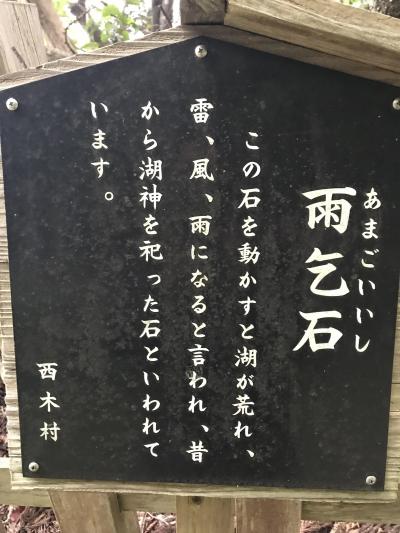 あまごいいし
雨乞石
この石を動かすと湖が荒れ、
雷、風、雨になると言われ、昔
から湖神を祀った石といわれて
います。
西木村